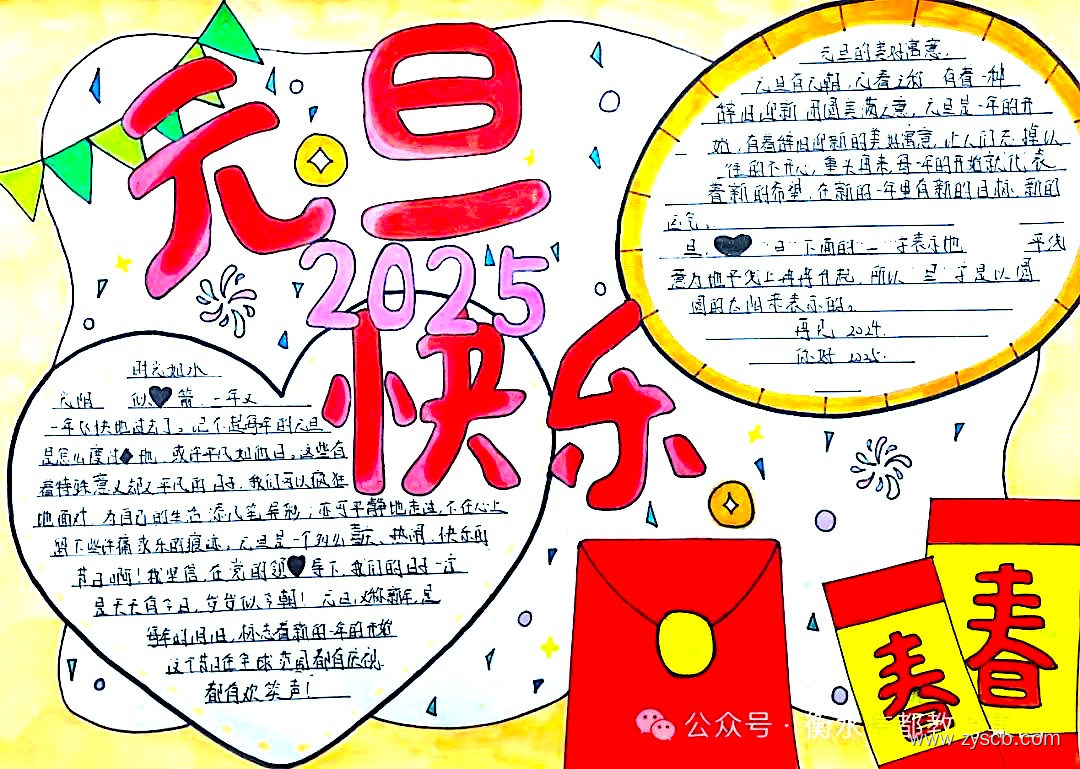 元旦
2025
快乐
元旦的美好寓意.
元旦有元朝,元春之称 有着一种
辞旧迎新 团圆美满之意,元旦是一年的开
始,有着辞旧迎新的美好寓意,让人们忘掉以
往的不开心,重头再来每一年的开始就代表
着新的希望,在新的一年里有新的目标,新的
运气,
旦, "日"下面的"一"字表示地 平线
意为地平线上冉冉升起,所以"旦"字是以圆
圆的太阳来表示的。
再见,2024.
你好 2025.
时光如水
光阴 似 箭,一年又
一年飞快地过去了。记不起每年的元旦
是怎么度过 地,或许平凡如他日。这些有
着特殊意义却又平凡的日子,我们可以疯狂
地面对,为自己的生活添几笔异彩;亦可平静地走过,不在心上
留下些许痛或乐的痕迹,元旦是一个多么喜庆、热闹、快乐的
节日啊!我坚信,在党的领 导下,我们的日子一定
是天天有今日,岁岁似今朝!元旦,又称新年,是
每年的1月1日,标志着新的一年的开始
这个节日在全球范围都有庆祝
都有欢笑声!
春
春
公众号·衡水 都教
www.zyscb.com